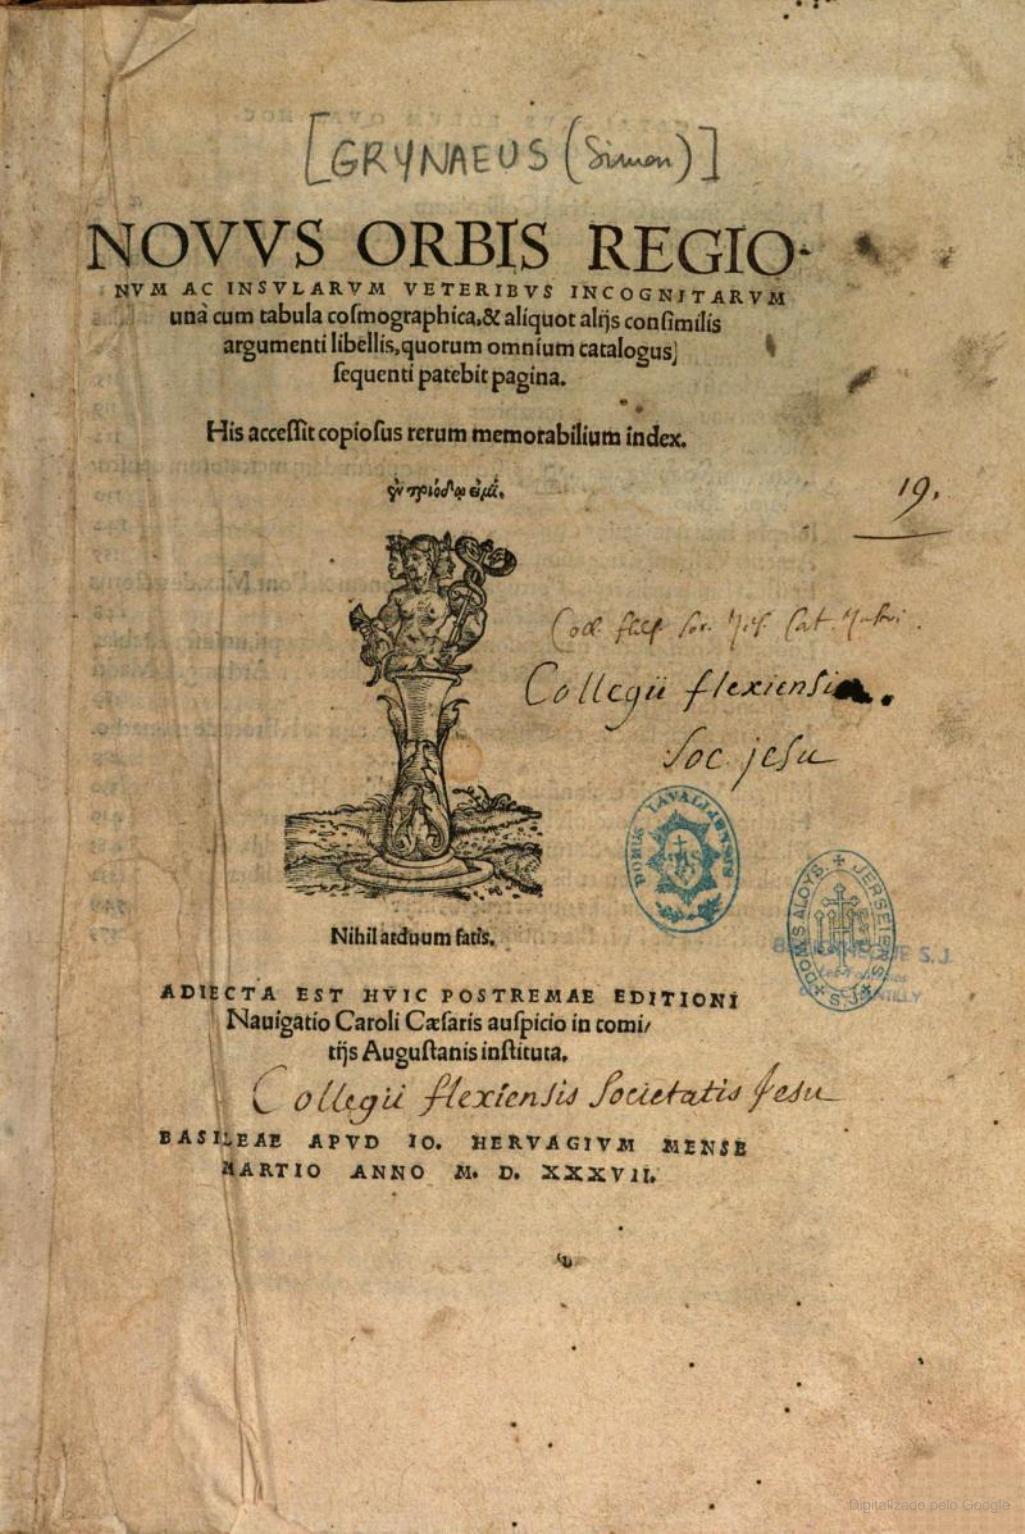 [GRYNAEUS (Simon)]
NOVVS ORBIS REGIO-
NVM AC INSVLARVM VETERIBVS INCOGNITARVM
unà cum tabula coſmographica,& aliquot alijs conſimilis
argumenti libellis,quorum omnium catalogus
ſequenti patebit pagina.
His acceſſit copioſus rerum memorabilium index.
19.
Coll. flex. Soc. Jes. Cat.
Collegii flexiensis.
Soc jesu
DOMUS LAVALLIENSIS
IHS
DOMUS ALOYS. JERSEIENSIS S.J.
IHS
BIBLIOTHEQUE S.J.
Les Fontaines
CHANTILLY
Nihil arduum fatis.
ADIECTA EST HVIC POSTREMAE EDITIONI
Nauigatio Caroli Cæſaris auſpicio in comi/
tijs Auguſtanis inſtituta.
Collegii flexiensis Societatis Jesu
BASILEAE APVD IO. HERVAGIVM MENSE
MARTIO ANNO M. D. XXXVII.
Digitalizado pelo Google